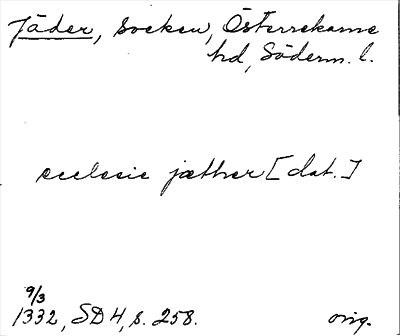 Jäder, socken, Österrekarne
hd, Söderm. l.
ecclesie jæther [dat.]
9/3
1332, SD 4, s. 258. orig.